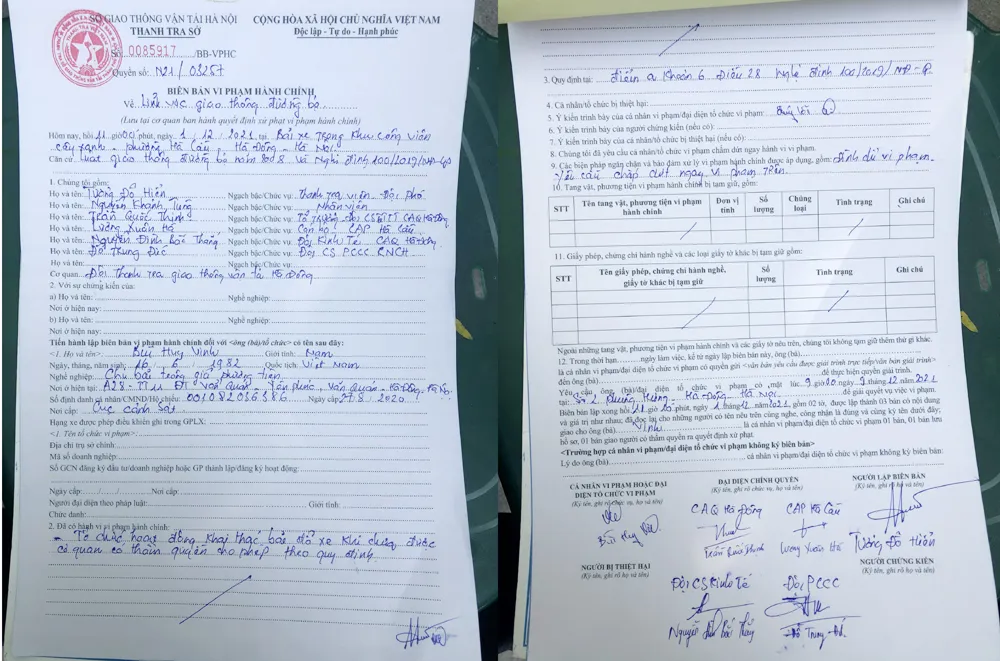 SỞ GIAO THÔNG VẬN TẢI HÀ NỘI
THANH TRA SỞ
CỘNG HÒA XÃ HỘI CHỦ NGHĨA VIỆT NAM
Độc lập - Tự do - Hạnh phúc
Số 0085917 /BB-VPHC
Quyển số: N21/03257
BIÊN BẢN VI PHẠM HÀNH CHÍNH
Về Lĩnh vực giao thông đường bộ
(Lưu tại cơ quan ban hành quyết định xử phạt vi phạm hành chính)
Hôm nay, hồi 11 giờ 00 phút, ngày 1/12/2021 tại Bãi xe trong khu công viên
cây xanh - phường Hà Cầu - Hà Đông - Hà Nội
Căn cứ Luật giao thông đường bộ năm 2008 và Nghị định 100/2019/NĐ-CP
1. Chúng tôi gồm:
Họ và tên: Tường Đồ Hiển Ngạch bậc/Chức vụ: Thanh tra viên - Đội phó
Họ và tên: Nguyễn Khánh Tùng Ngạch bậc/Chức vụ: Nhân viên
Họ và tên: Trần Quốc Thịnh Ngạch bậc/Chức vụ: Tổ trưởng đội CSGTTT CAQ Hà Đông
Họ và tên: Lương Xuân Hà Ngạch bậc/Chức vụ: Cán bộ CAP Hà Cầu
Họ và tên: Nguyễn Đình Bắc Thắng Ngạch bậc/Chức vụ: Đội Kinh Tế CAQ Hà Đông
Họ và tên: Đỗ Trung Đức Ngạch bậc/Chức vụ: Đội CS PCCC CNCH
Họ và tên: Ngạch bậc/Chức vụ:
Cơ quan: Đội Thanh tra giao thông vận tải Hà Đông
2. Với sự chứng kiến của:
a) Họ và tên: Nghề nghiệp:
Nơi ở hiện nay:
b) Họ và tên: Nghề nghiệp:
Nơi ở hiện nay:
Tiến hành lập biên bản vi phạm hành chính đối với <ông (bà)/tổ chức> có tên sau đây:
<1. Họ và tên>: Bùi Huy Vinh Giới tính: Nam
Ngày, tháng, năm sinh: 16/6/1982 Quốc tịch: Việt Nam
Nghề nghiệp: Chủ bãi trông giữ phương tiện
Nơi ở hiện tại: A28 - TT11 ĐT Văn Quán - Yên Phúc - Văn Quán - Hà Đông - Hà Nội
Số định danh cá nhân/CMND/Hộ chiếu: 001082036386 Ngày cấp: 27/8/2020
Nơi cấp: Cục cảnh sát
Hạng xe được phép điều khiển ghi trong GPLX:
<1. Tên tổ chức vi phạm>:
Địa chỉ trụ sở chính:
Mã số doanh nghiệp:
Số GCN đăng ký đầu tư/doanh nghiệp hoặc GP thành lập/đăng ký hoạt động:
Ngày cấp: / / Nơi cấp:
Người đại diện theo pháp luật: Giới tính:
Chức danh:
2. Đã có hành vi vi phạm hành chính:
- Tổ chức hoạt động khai thác bãi đỗ xe khi chưa được
cơ quan có thẩm quyền cho phép theo quy định.
3. Quy định tại: điểm a Khoản 6 Điều 28 Nghị định 100/2019/NĐ-CP
4. Cá nhân/tổ chức bị thiệt hại:
5. Ý kiến trình bày của cá nhân vi phạm/đại diện tổ chức vi phạm:
6. Ý kiến trình bày của người chứng kiến (nếu có):
7. Ý kiến trình bày của cá nhân/tổ chức bị thiệt hại (nếu có):
8. Chúng tôi đã yêu cầu cá nhân/tổ chức vi phạm chấm dứt ngay hành vi vi phạm.
9. Các biện pháp ngăn chặn và bảo đảm xử lý vi phạm hành chính được áp dụng, gồm: đình chỉ vi phạm
Yêu cầu chấp dứt ngay vi phạm trên.
10. Tang vật, phương tiện vi phạm hành chính bị tạm giữ, gồm:
STT Tên tang vật, phương tiện vi phạm hành chính Đơn vị tính Số lượng Chủng loại Tình trạng Ghi chú
11. Giấy phép, chứng chỉ hành nghề và các loại giấy tờ khác bị tạm giữ gồm:
STT Tên giấy phép, chứng chỉ hành nghề, giấy tờ khác bị tạm giữ Số lượng Tình trạng Ghi chú
Ngoài những tang vật, phương tiện vi phạm hành chính và các giấy tờ nêu trên, chúng tôi không tạm giữ thêm thứ gì khác.
12. Trong thời hạn ngày làm việc, kể từ ngày lập biên bản này, ông (bà)
là cá nhân vi phạm/đại diện tổ chức vi phạm có quyền gửi <văn bản yêu cầu được giải trình trực tiếp/văn bản giải trình>
đến ông (bà) để thực hiện quyền giải trình.
Yêu cầu ông (bà)/đại diện tổ chức vi phạm có mặt lúc 9 giờ 00 ngày 9 tháng 12 năm 2021
tại: Số 2 Phùng Hưng - Hà Đông - Hà Nội để giải quyết vụ việc vi phạm.
Biên bản lập xong hồi 11 giờ 20 phút, ngày 1 tháng 12 năm 2021, gồm 02 tờ, được lập thành 03 bản có nội dung
và giá trị như nhau; đã đọc lại cho những người có tên nêu trên cùng nghe, công nhận là đúng và cùng ký tên dưới đây;
giao cho ông (bà) Vinh là cá nhân vi phạm/đại diện tổ chức vi phạm 01 bản, 01 bản lưu
hồ sơ, 01 bản giao người có thẩm quyền ra quyết định xử phạt.
<Trường hợp cá nhân vi phạm/đại diện tổ chức vi phạm không ký biên bản>
Lý do ông (bà) cá nhân vi phạm/đại diện tổ chức vi phạm không ký biên bản:
CÁ NHÂN VI PHẠM HOẶC ĐẠI DIỆN TỔ CHỨC VI PHẠM
(Ký tên, ghi rõ chức vụ, họ và tên)
Bùi Huy Vinh
ĐẠI DIỆN CHÍNH QUYỀN
(Ký tên, ghi rõ chức vụ, họ và tên)
CAQ Hà Đông CAP Hà Cầu
Trần Quốc Thịnh Lương Xuân Hà
NGƯỜI LẬP BIÊN BẢN
(Ký tên, ghi rõ họ và tên)
Tường Đồ Hiển
NGƯỜI BỊ THIỆT HẠI
(Ký tên, ghi rõ họ và tên)
NGƯỜI CHỨNG KIẾN
(Ký tên, ghi rõ họ và tên)
Đội CS Kinh Tế Đội PCCC
Nguyễn Đình Bắc Thắng Đỗ Trung Đức